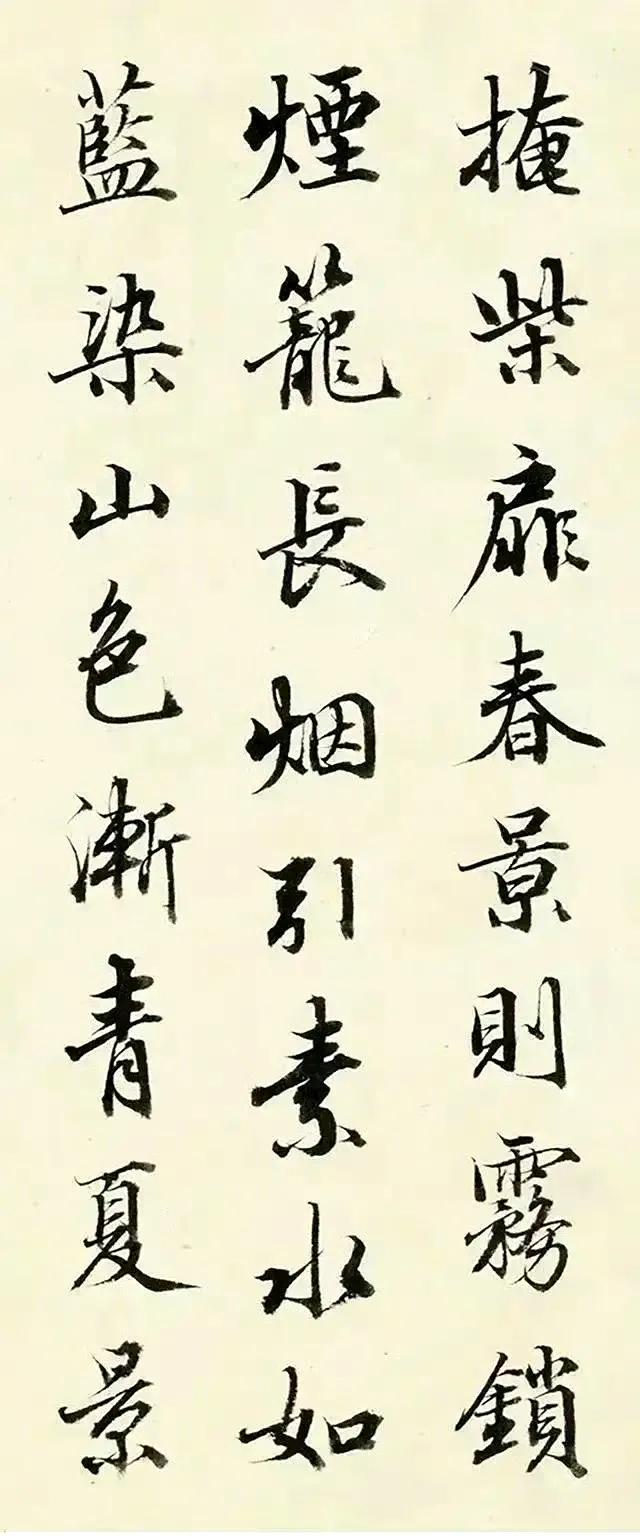 掩柴扉春景則霧鎖
煙籠長烟引素水如
藍染山色漸青夏景